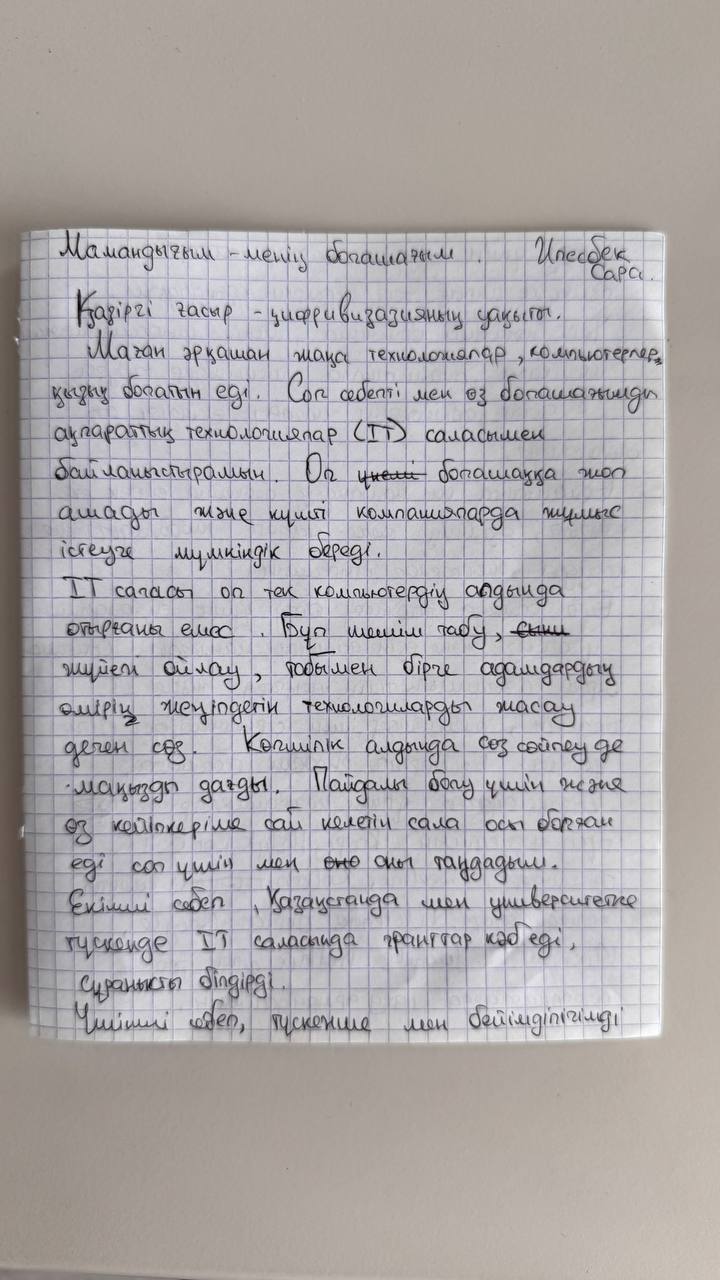 Мамандығым - менің болашағым. Илесбек
Сара.
Қазіргі ғасыр - цифривизазияның уақыты.
Маған әрқашан жаңа технологиялар, компьютерлер
қызық болатын еді. Сол себепті мен өз болашағымды
ақпараттық технологиялар (IT) саласымен
байланыстырамын. Ол болашаққа жол
ашады және күшті компанияларда жұмыс
істеуге мүмкіндік береді.
IT саласы ол тек компьютердің алдында
отырғаны емес. Бұл шешім табу,
жүйелі ойлау, тобымен бірге адамдардың
өмірін жеңілдетін технологиларды жасау
деген сөз. Көпшілік алдында сөз сөйлеу де
маңызды дағды. Пайдалы болу үшін және
өз кейіпкеріме сай келетін сала осы болған
еді сол үшін мен оны таңдадым.
Екінші себеп, Қазақстанда мен университетке
түскенде IT саласында гранттар көб еді,
сұранысты білдірді.
Үшінші себеп, түскенше мен бейімділігімді